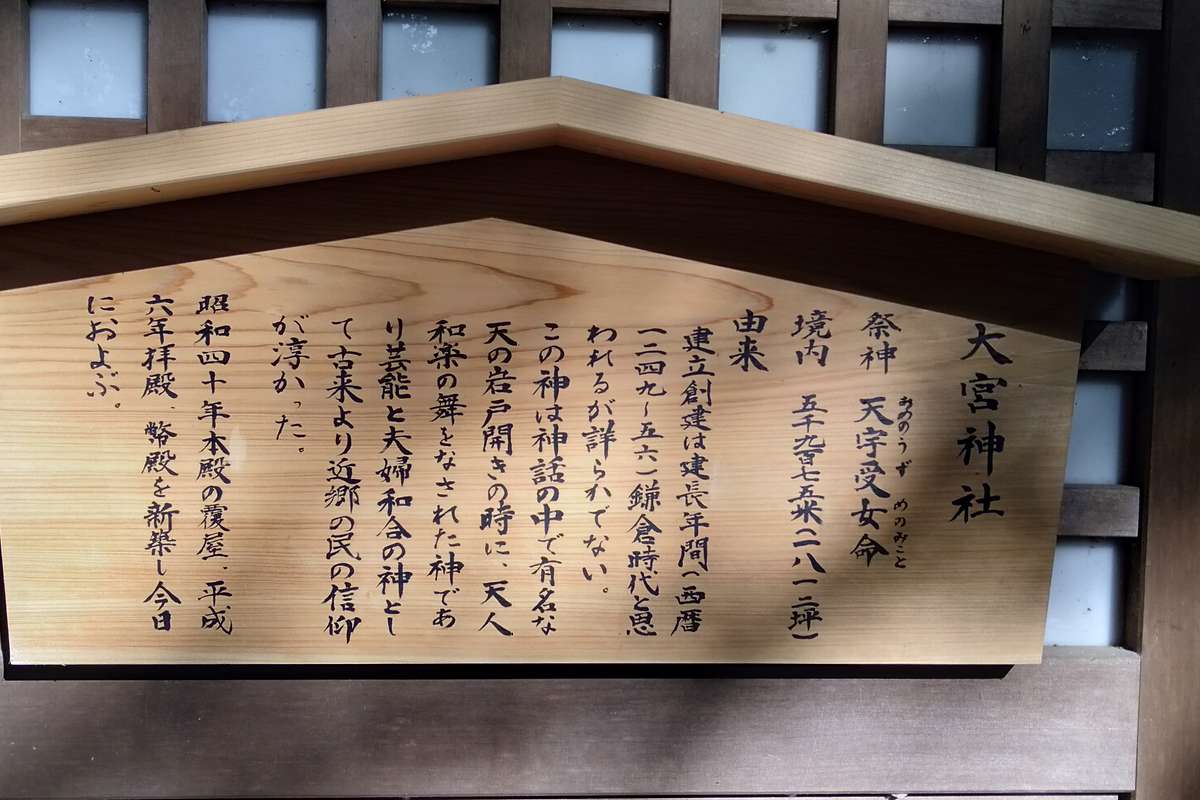 大宮神社
祭神 天宇受女命
あめのうず めのみこと
境内 五千九百七五米(一八一二坪)
由来
建立創建は建長年間(西暦
一二四九~五六)鎌倉時代と思
われるが詳らかでない。
この神は神話の中で有名な
天の岩戸開きの時に、天人
和楽の舞をなされた神であ
り芸能と夫婦和合の神とし
て古来より近郷の民の信仰
が淳かった。
昭和四十年本殿の覆屋、平成
六年拝殿、幣殿を新築し今日
におよぶ。